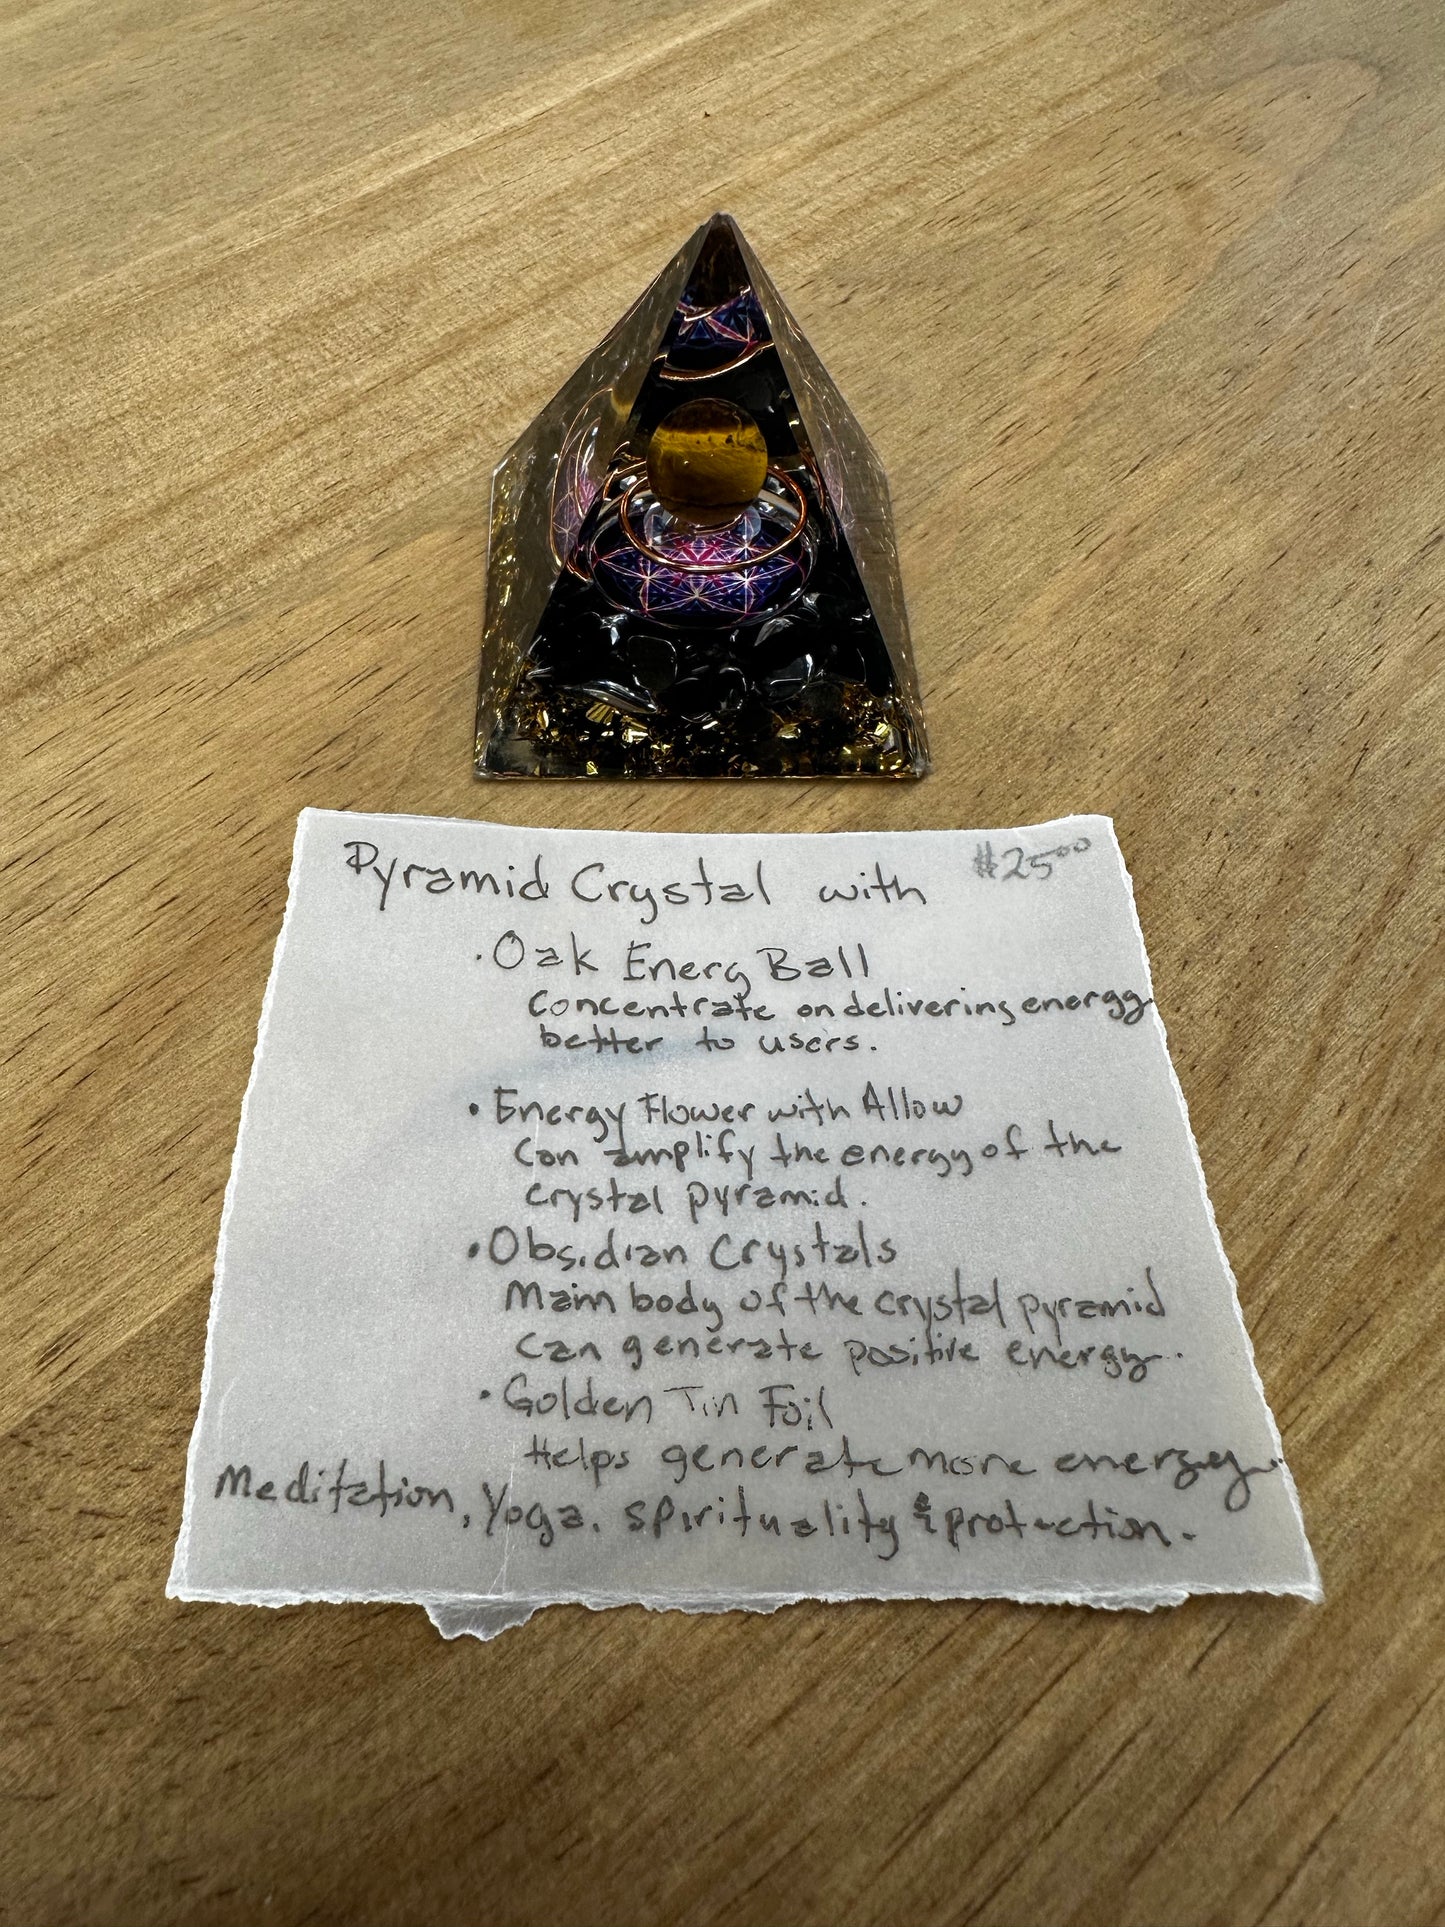 Pyramid Crystal with $25.00
• Oak Energ Ball
Concentrate on delivering energy
better to users.
• Energy Flower with Allow
Can amplify the energy of the
crystal pyramid.
• Obsidian Crystals
Main body of the crystal pyramid
can generate positive energy.
• Golden Tin Foil
Helps generate more energy.
Meditation, Yoga, spirituality & protection.